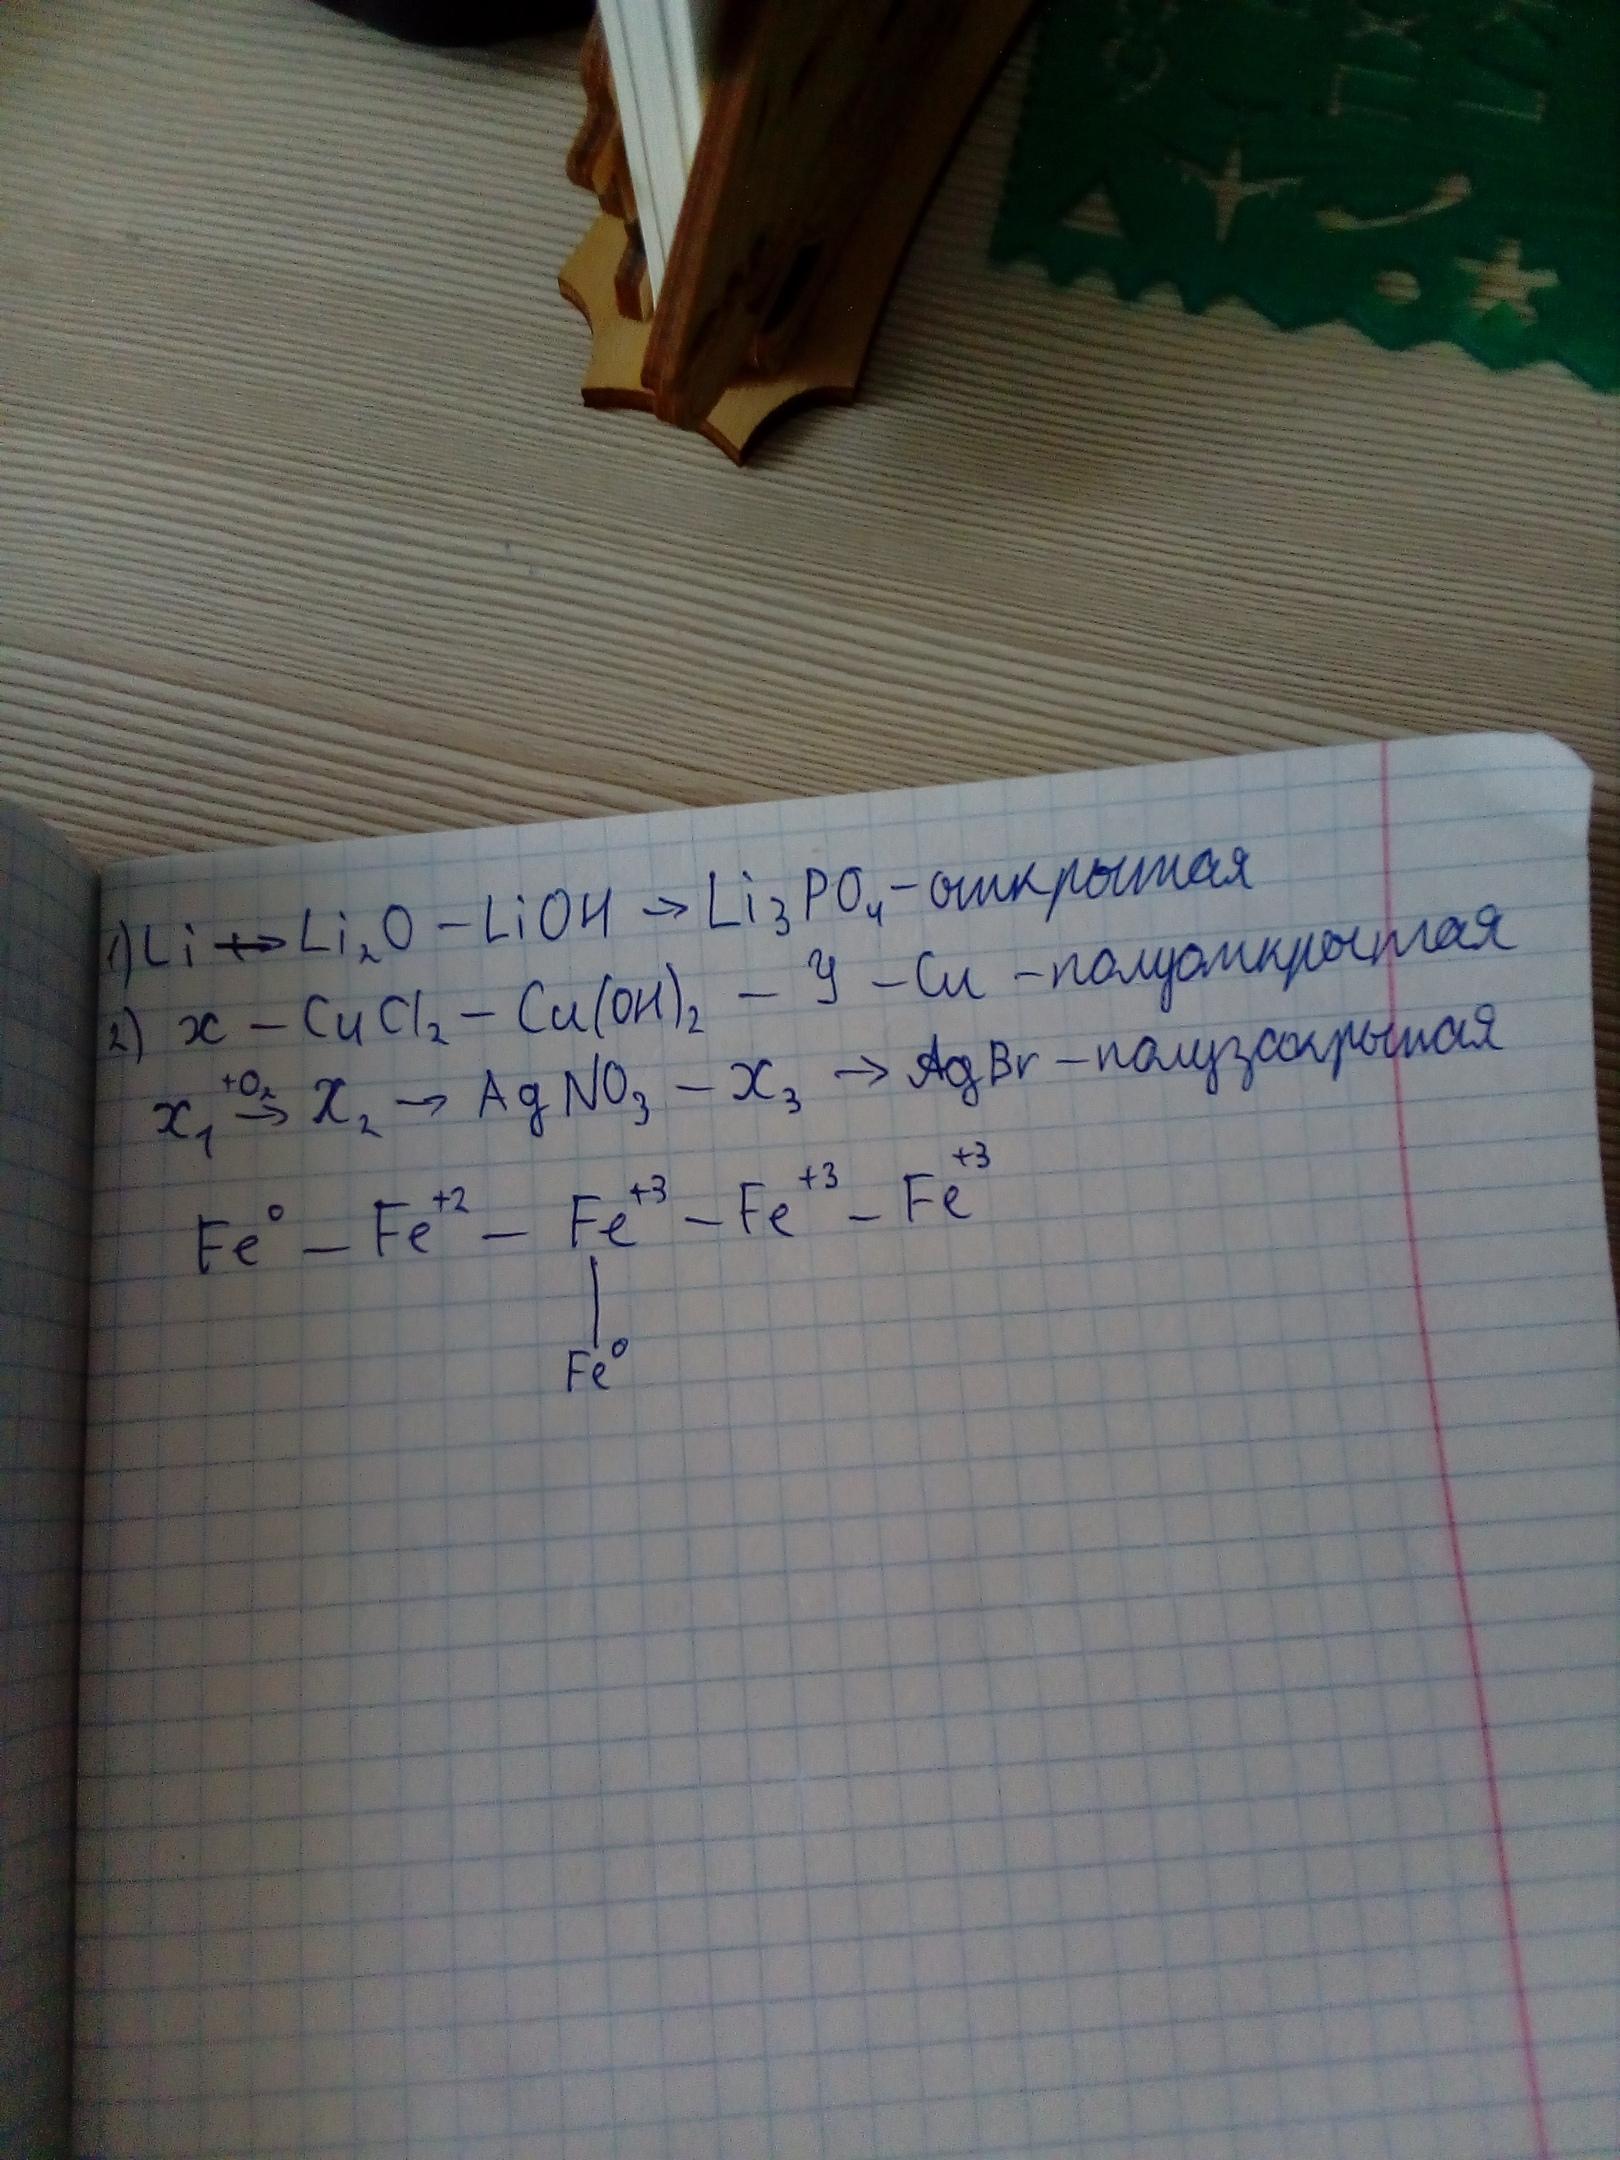 1) Li ↔ Li₂O – LiOH → Li₃PO₄ – открытая
2) x – CuCl₂ – Cu(OH)₂ – y – Cu – полуоткрытая
x₁ +O₂→ x₂ → AgNO₃ – x₃ → AgBr – полузакрытая
Fe⁰ – Fe⁺² – Fe⁺³ – Fe⁺³ – Fe⁺³
|
Fe⁰